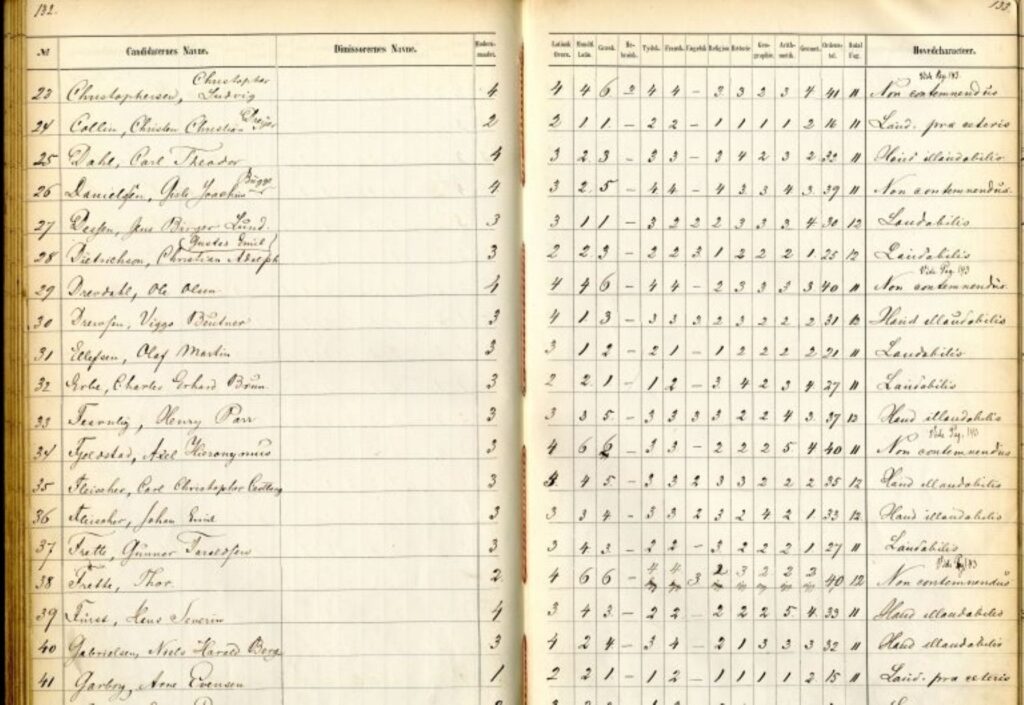 132.
133
№ Candidaternes Navne. Dimissorernes Navne. Modersmaalet. Latinsk Overs. Mundtl. Latin. Græsk. Hebraisk. Tydsk. Fransk. Engelsk. Religion. Historie. Geographie. Arithmetik. Geomet. Hovedcharacteer.
Christopher Vide Pag. 193.
23 Christophersen, Ludvig 4 4 4 6 2 4 4 – 3 3 2 3 4 41 11 Non contemnendus
24 Collin, Christen Christian 2 2 1 1 – 2 2 – 1 1 1 1 2 16 11 Laud. præ ceteris
25 Dahl, Carl Theodor 4 3 2 3 – 3 3 – 3 4 2 3 2 33 11 Haud illaudabilis
Bugge
26 Danielsen, Joachim 4 3 2 5 – 4 4 – 4 3 3 4 3 39 11 Non contemnendus
27 Dessen, Jens Birger Lund 3 3 1 1 – 3 2 2 2 3 3 3 4 30 12 Laudabilis
Gustav Emil
28 Dietrichson, Christian Adolph 3 2 2 3 – 2 2 3 1 2 2 2 1 25 12 Laudabilis
Vide Pag. 193
29 Drevdahl, Ole Olsen 4 4 4 6 – 4 4 – 2 3 3 3 3 40 11 Non contemnendus
30 Drewsen, Viggo Beutner 3 4 1 3 – 3 3 3 2 3 2 2 2 31 12 Haud illaudabilis
31 Ellefsen, Olaf Martin 3 3 1 2 – 2 1 – 1 2 2 2 2 21 11 Laudabilis
32 Erbe, Charles Erhard Brun 3 2 2 1 – 1 2 – 3 4 2 3 4 27 11 Laudabilis
33 Fearnley, Henry Parr 3 3 3 5 – 3 3 3 3 2 2 4 3 37 12 Haud illaudabilis
Vide Pag. 193
34 Fjeldstad, Axel Hieronymus 3 4 6 6 – 3 3 – 2 2 2 5 4 40 11 Non contemnendus
35 Fleischer, Carl Christopher 3 4 5 – 3 3 2 3 3 2 2 2 35 12 Haud illaudabilis
36 Fleischer, Johan Emil 3 3 3 4 – 3 3 2 3 2 4 2 1 33 12 Haud illaudabilis
37 Frette, Gunnar Taraldsen 3 3 4 3 – 2 2 – 3 2 2 2 1 27 11 Laudabilis
Vide Pag. 193
38 Frette, Thor 2 4 6 6 – 4 4 3 2 3 2 2 2 40 12 Non contemnendus
39 Fürst, Hans Severin 4 3 4 3 – 2 2 – 2 2 2 5 4 33 11 Haud illaudabilis
40 Gabrielsen, Niels Harald Berg 3 4 2 4 – 3 4 – 2 1 3 3 3 32 11 Haud illaudabilis
41 Garborg, Arne Evensen 1 2 2 1 – 1 2 – 1 1 1 1 2 15 11 Laud. præ ceteris